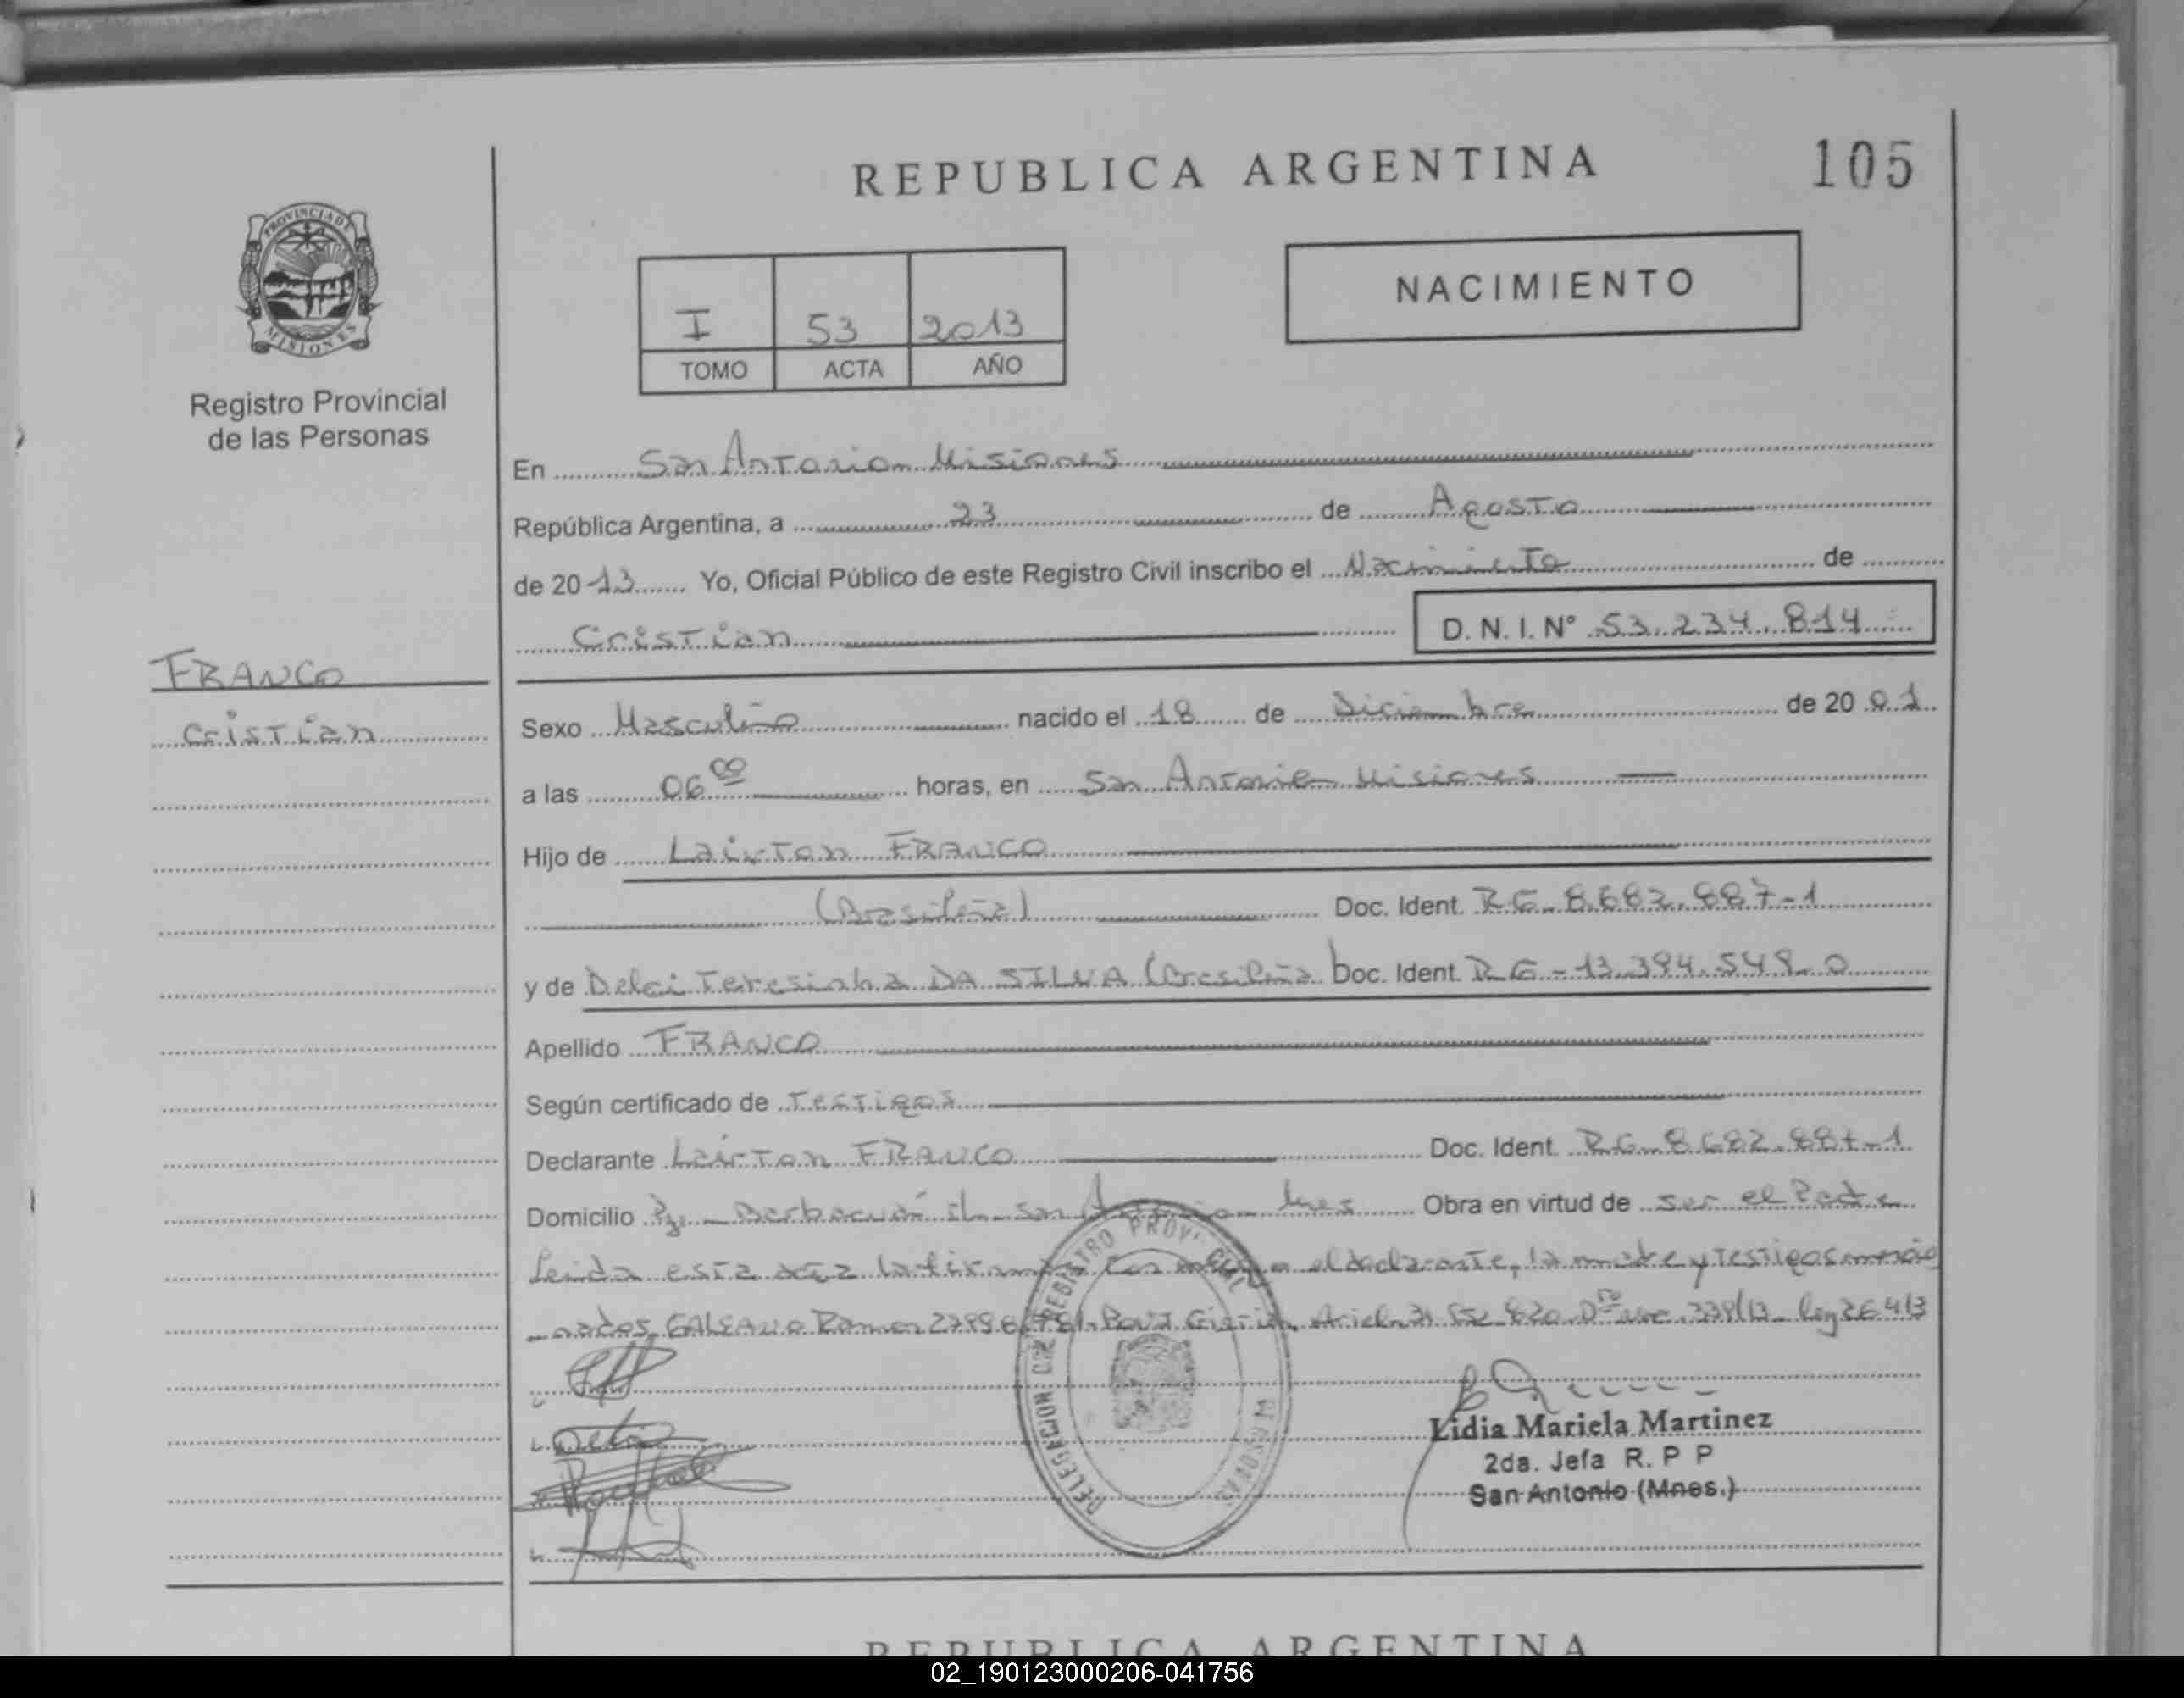 REPUBLICA ARGENTINA
105
PROVINCIA DE
MISIONES
Registro Provincial
de las Personas
I 53 2013
TOMO ACTA AÑO
NACIMIENTO
En San Antonio Misiones
República Argentina, a 23 de Agosto
de 2013 Yo, Oficial Público de este Registro Civil inscribo el Nacimiento de
Cristian D. N. I. N° 53.234.814
FRANCO
Cristian
Sexo Masculino nacido el 18 de Diciembre de 2001
a las 06 00 horas, en San Antonio Misiones
Hijo de Lairton FRANCO
(Brasileña) Doc. Ident. RG-8.682.887-1
y de Delci Teresinha DA SILVA (Brasileña Doc. Ident. RG-13.394.548-0
Apellido FRANCO
Según certificado de Testigos
Declarante Lairton FRANCO Doc. Ident. RG-8.682.887-1
Domicilio San Antonio Mnes Obra en virtud de ser el Padre
leida esta acta la firman el declarante, la madre y testigos mencio
-nados, GALEANO Ramon Ariel 31 852 820 338/13 ley 26.413
DELEGACION DEL REGISTRO PROVINCIAL
Lidia Mariela Martinez
2da. Jefa R. P P
San Antonio (Mnes.)
REPUBLICA ARGENTINA
02_190123000206-041756